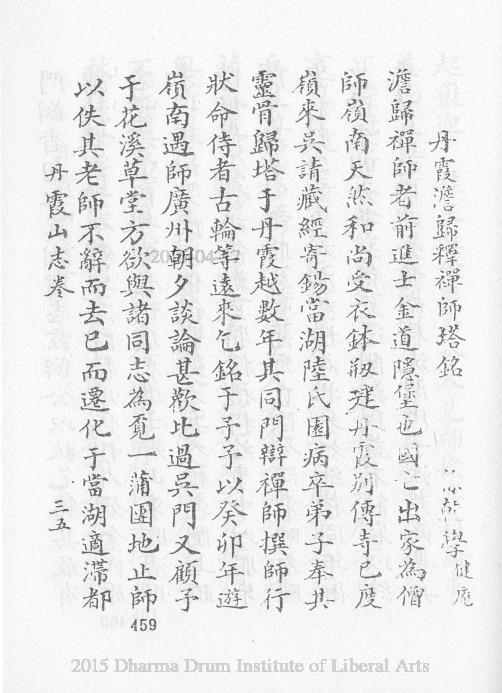 丹霞澹歸釋禪師塔銘
學健庵
澹歸禪師者前進士金道隱堡也國亡出家為僧
師嶺南天然和尚受衣鉢剏建丹霞別傳寺已度
嶺來吳請藏經寄錫當湖陸氏園病卒弟子奉其
靈骨歸塔于丹霞越數年其同門辯禪師撰師行
狀命侍者古輪等遠來乞銘于予予以癸卯年遊
嶺南遇師廣州朝夕談論甚歡比過吳門又顧予
于花溪草堂方欲與諸同志為覓一蒲團地止師
以佚其老師不辭而去已而遷化于當湖適滯都
丹霞山志卷
三五
459
2015 Dharma Drum Institute of Liberal Arts